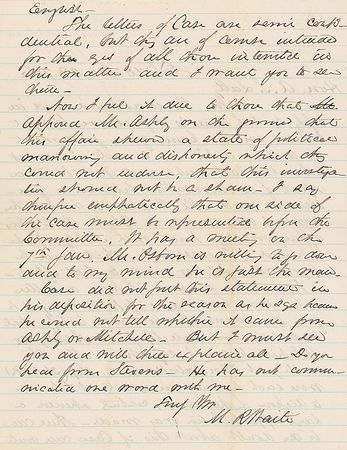 English —
The letters of Case are semi confi-
dential, but they are of course intended
for the eyes of all those interested in
this matter and I want you to see
them —
Now I feel it due to those that
opposed Mr. Ashley on the ground that
this affair shewed a state of political
maneuvring and dishonesty which they
could not endorse, that this investiga-
tion should not be a sham — I say
therefore emphatically that one side of
the case must be represented before the
Committee. It has a meeting on the
7th Jan. Mr. Osborn is willing to go down
and to my mind he is just the man —
Case did not put this statement in
his deposition for the reason as he says because
he could not tell whether it came from
Ashley or Mitchell — But I must see
you and will then explain all — Do you
hear from Stevens — He has not commu-
nicated one word with me —
Truly Yrs
M. R. Waite